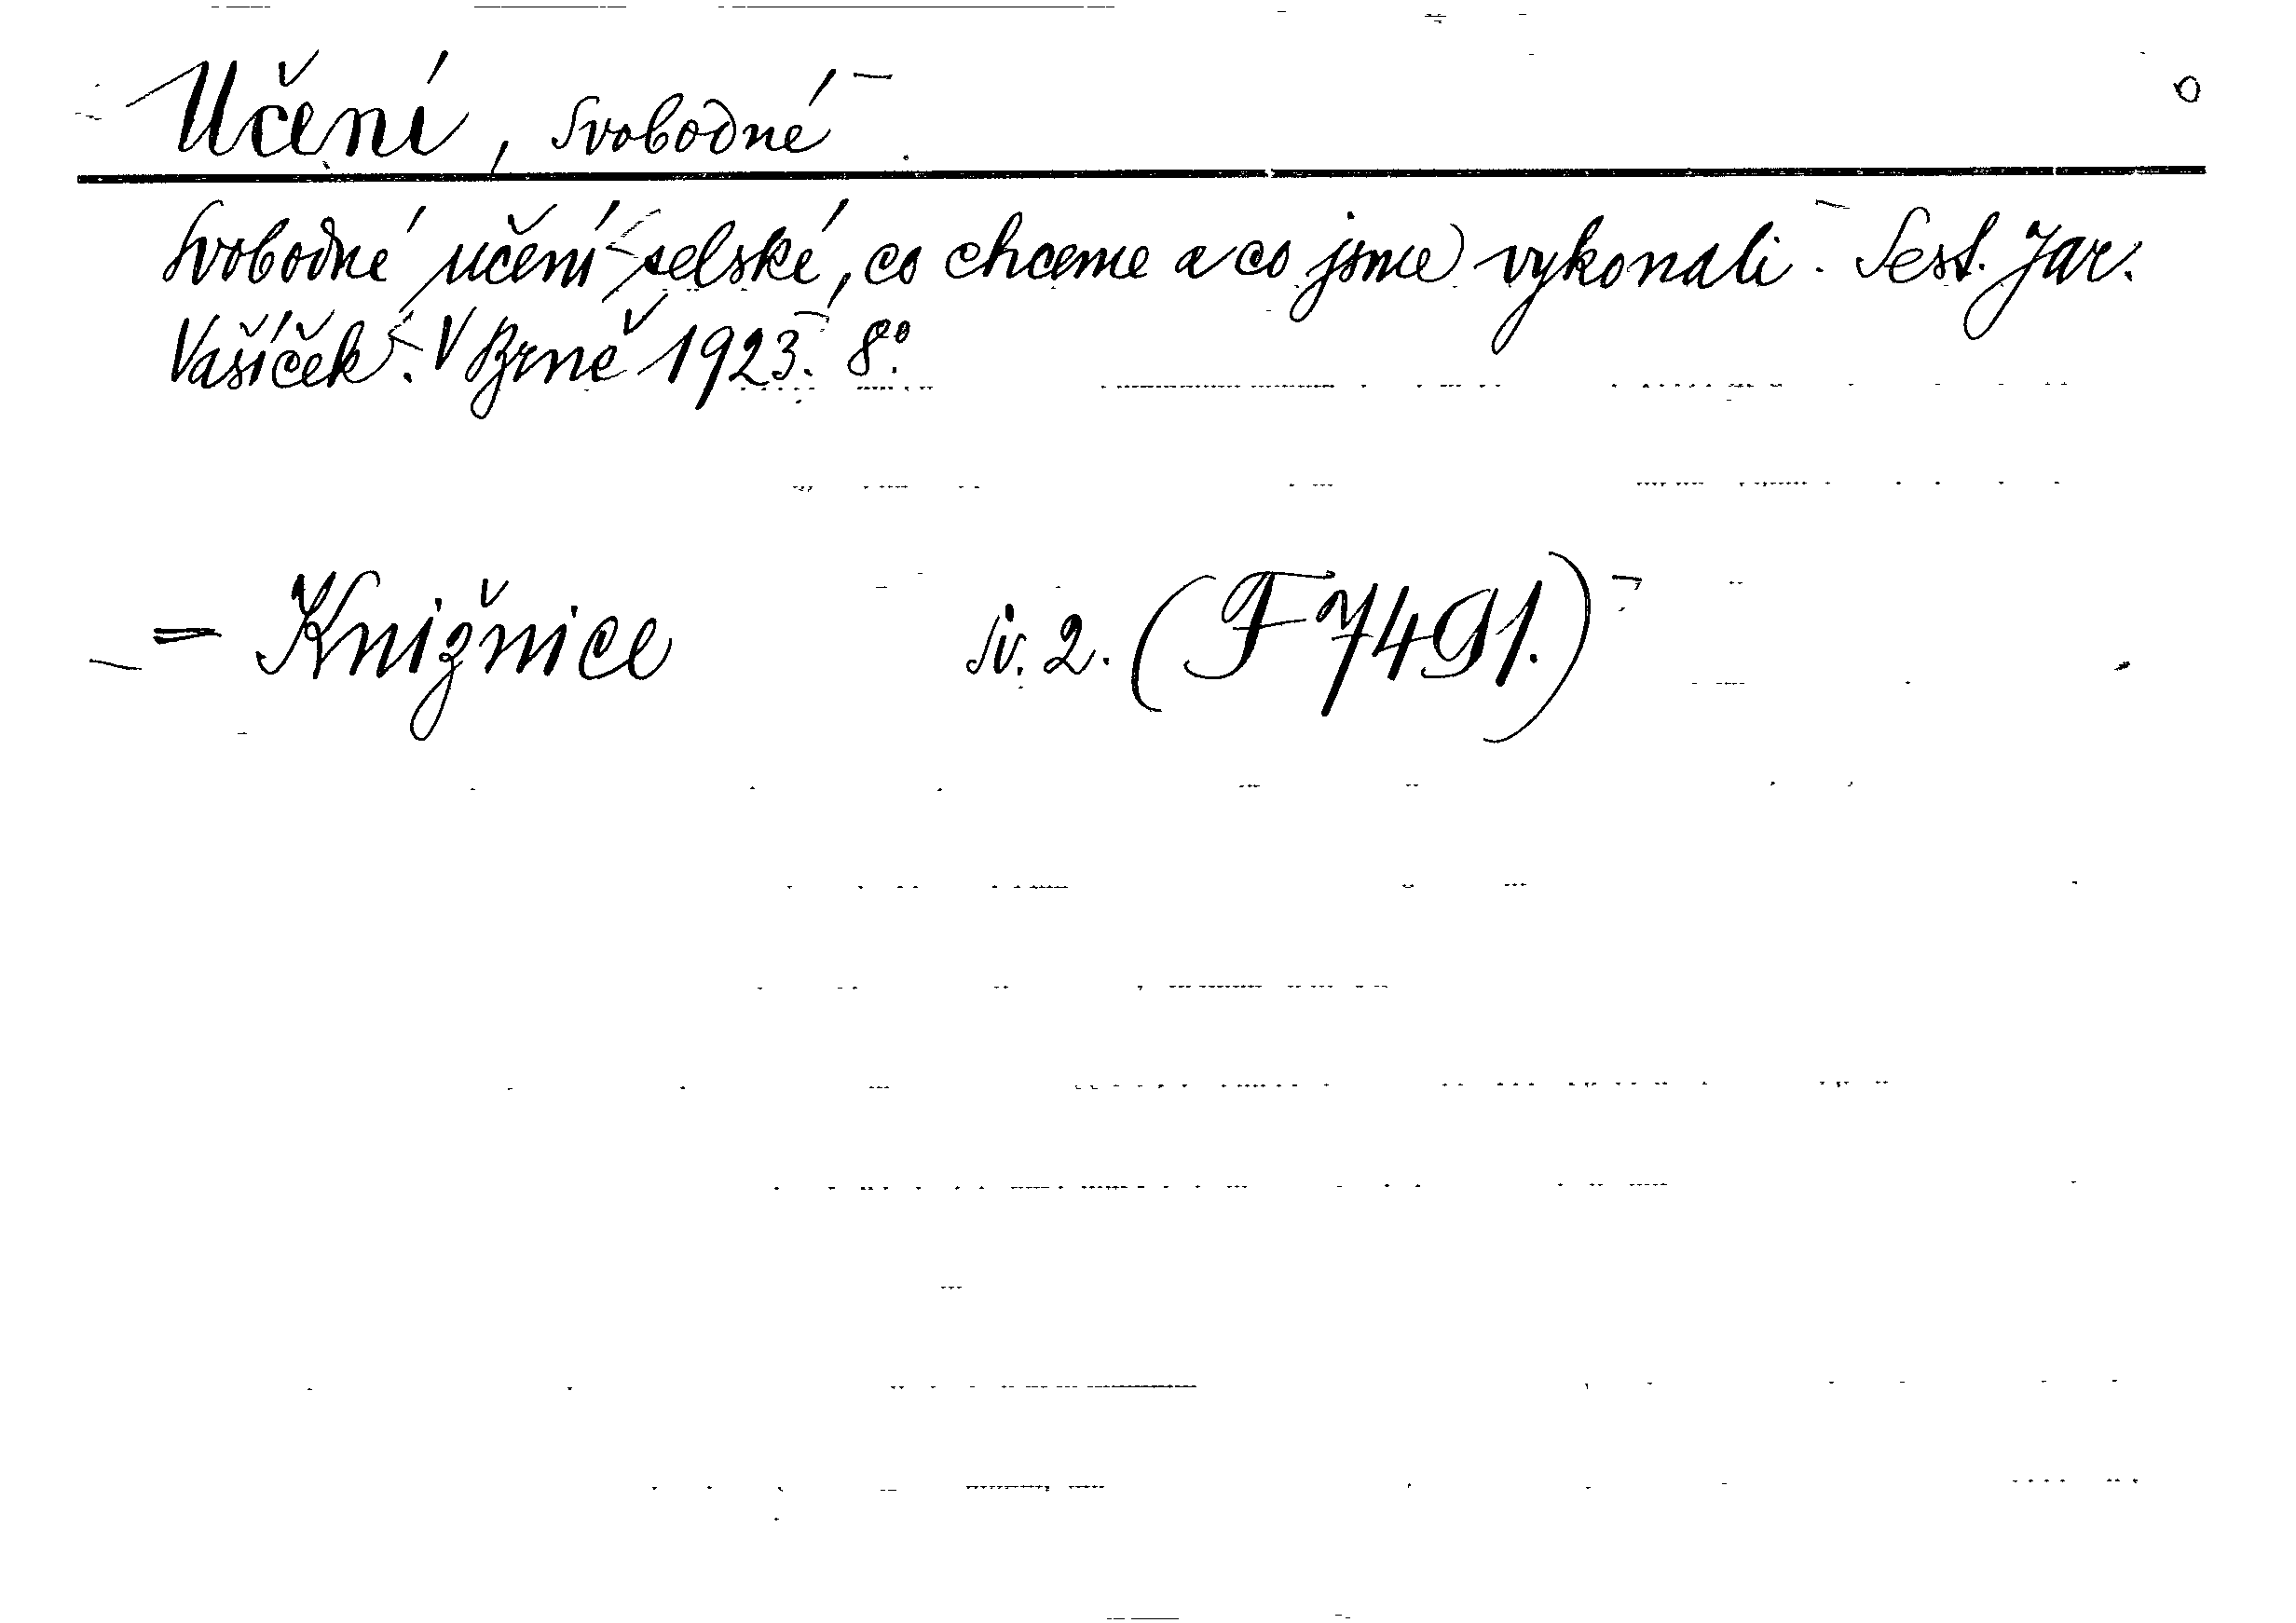 Učení, svobodné
Svobodné učení selské, co chceme a co jsme vykonali. Sest. Jar.
Vašíček. V Brně 1923. 8°.
= Knižnice sv. 2. (F 7491.)